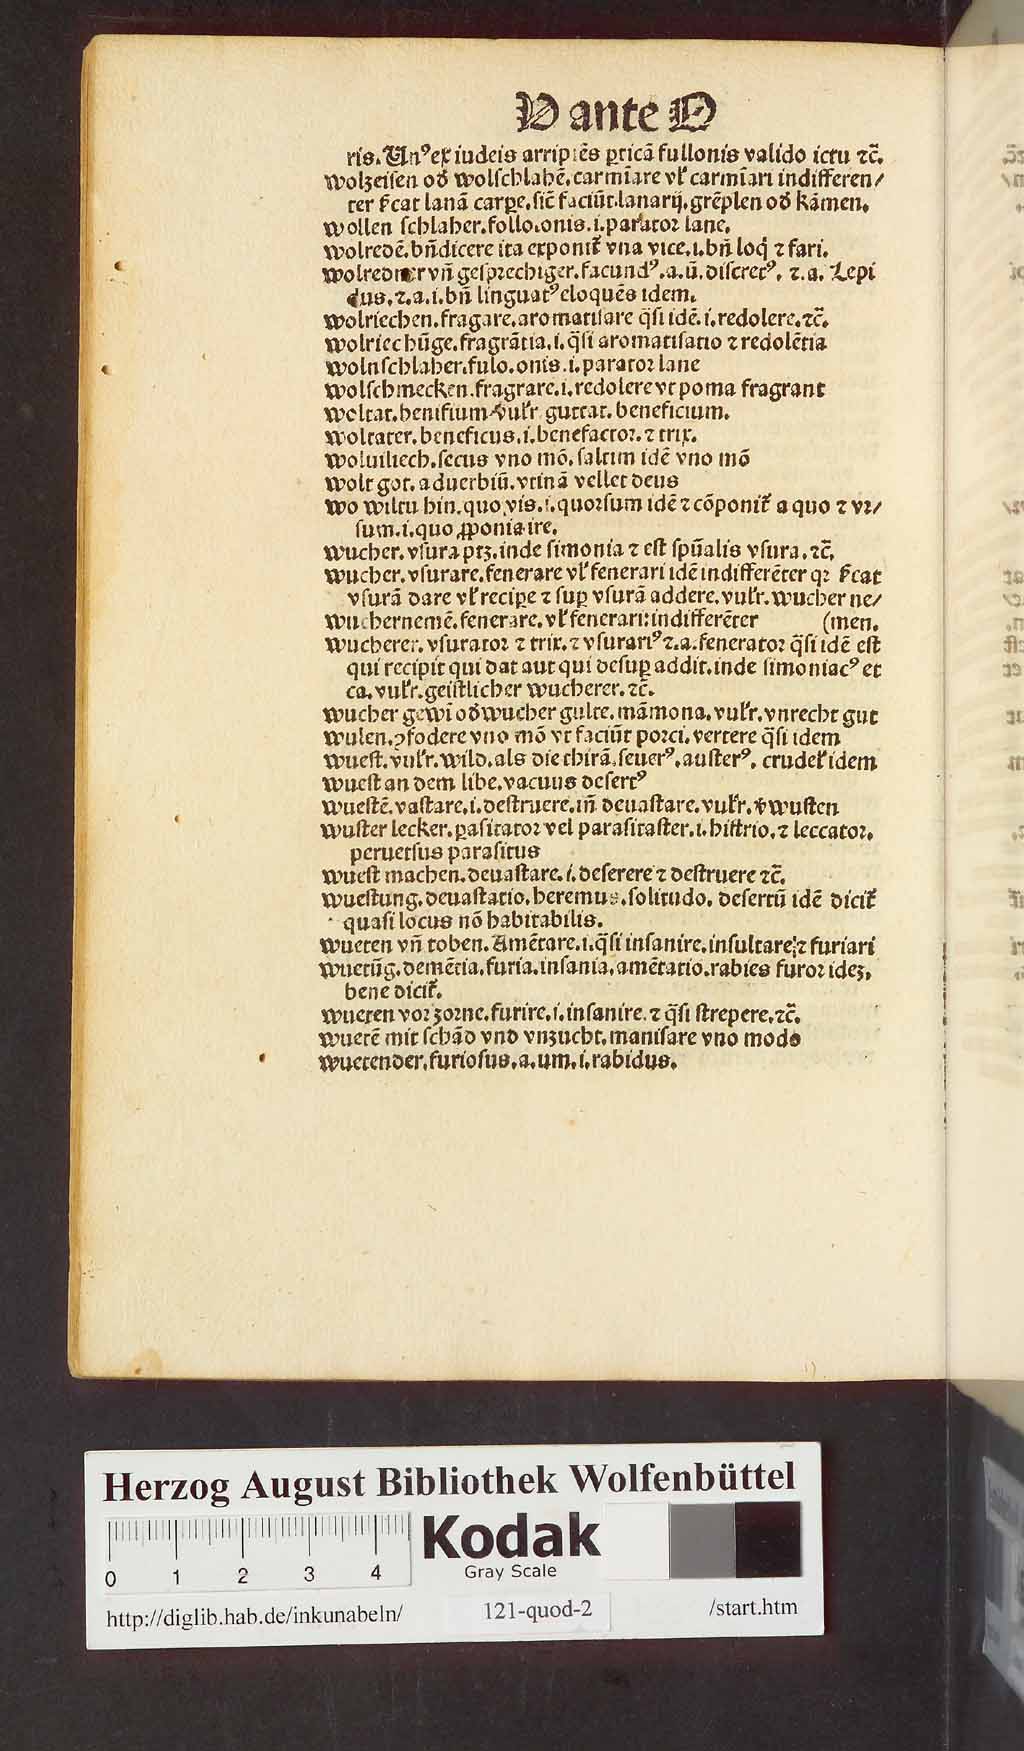 V ante O
ris. Unꝰ ex iudeis arripiēs ꝑticā fullonis valido ictu ⁊c̄.
wolzeisen oď wolschlahē. carmīare vľ carmīari indifferen/
ter ẜcat lanā carꝑe. sic̄ faciūt. lanarij. grēplen oď kāmen.
wollen schlaher. follo. onis. i. parator lane.
wolredē. bn̄dicere ita exponit᷑ vna vice. i. bn̄ loq̇ ⁊ fari.
wolredner vn̄ gesprechiger. facundꝰ. a. ū. discretꝰ. ⁊. a. Lepi
dus. ⁊. a. i. bn̄ linguatꝰ eloquēs idem.
wolriechen. fragare. aromatisare q̄si idē. i. redolere. ⁊c̄.
wolriechūge. fragrātia. i. q̄si aromatisatio ⁊ redolētia
wolnschlaher. fulo. onis. i. parator lane
wolschmecken. fragrare. i. redolere vt poma fragrant
woltat. benifium. vulr̄. guttat. beneficium.
woltater. beneficus. i. benefactor. ⁊ trix.
woluiliech. secus vno mō. saltim idē vno mō
wolt got. aduerbiū. vtinā vellet deus
wo wiltu hin. quo vis. i. quorsum idē ⁊ cōponit᷑ a quo ⁊ vr/
sum. i. quo ꝓponia ire.
wucher. vsura ptꝫ. inde simonia ⁊ est spūalis vsura. ⁊c̄.
wucher. vsurare. fenerare vľ fenerari idē indifferēter qꝛ ẜcat
vsurā dare vľ recipe ⁊ suꝑ vsurā addere. vulr̄. wucher ne/
wuchernemē. fenerare. vľ fenerari: indifferēter (men.
wucherer. vsurator ⁊ trix. ⁊ vsurariꝰ ⁊. a. fenerator q̄si idē est
qui recipit qui dat aut qui desuꝑ addit. inde simoniacꝰ et
ca. vulr̄. geistlicher wucherer. ⁊c̄.
wucher gewī oď wucher gulte. māmona. vulr̄. vnrecht gut
wulen. ꝯfodere vno mō vt faciūt porci. vertere q̄si idem
wuest. vulr̄. wild. als die thirā. seuerꝰ. austerꝰ. crudeľ idem
wuest an dem libe. vacuus desertꝰ
wuestē. vastare. i. destruere. in̄ deuastare. vulr̄. v̾wusten
wuster lecker. ꝑasitator vel parasitaster. i. histrio. ⁊ leccator.
peruersus parasitus
wuest machen. deuastare. i. deserere ⁊ destruere ⁊c̄.
wuestung. deuastatio. heremus. solitudo. desertū idē dicit᷑
quasi locus nō habitabilis.
wueten vn̄ toben. Amētare. i. q̄si insanire. insultare ⁊ furiari
wuetūg. demētia. furia. insania. amētatio. rabies furor ideꝫ.
bene dicit᷑.
wueten vor zorne. furire. i. insanire. ⁊ q̄si strepere. ⁊c̄.
wuetē mit schād vnd vnzucht. manisare vno modo
wuetender. furiosus. a. um. i. rabidus.
Herzog August Bibliothek Wolfenbüttel
0 1 2 3 4
Kodak
Gray Scale
http://diglib.hab.de/inkunabeln/ 121-quod-2 /start.htm